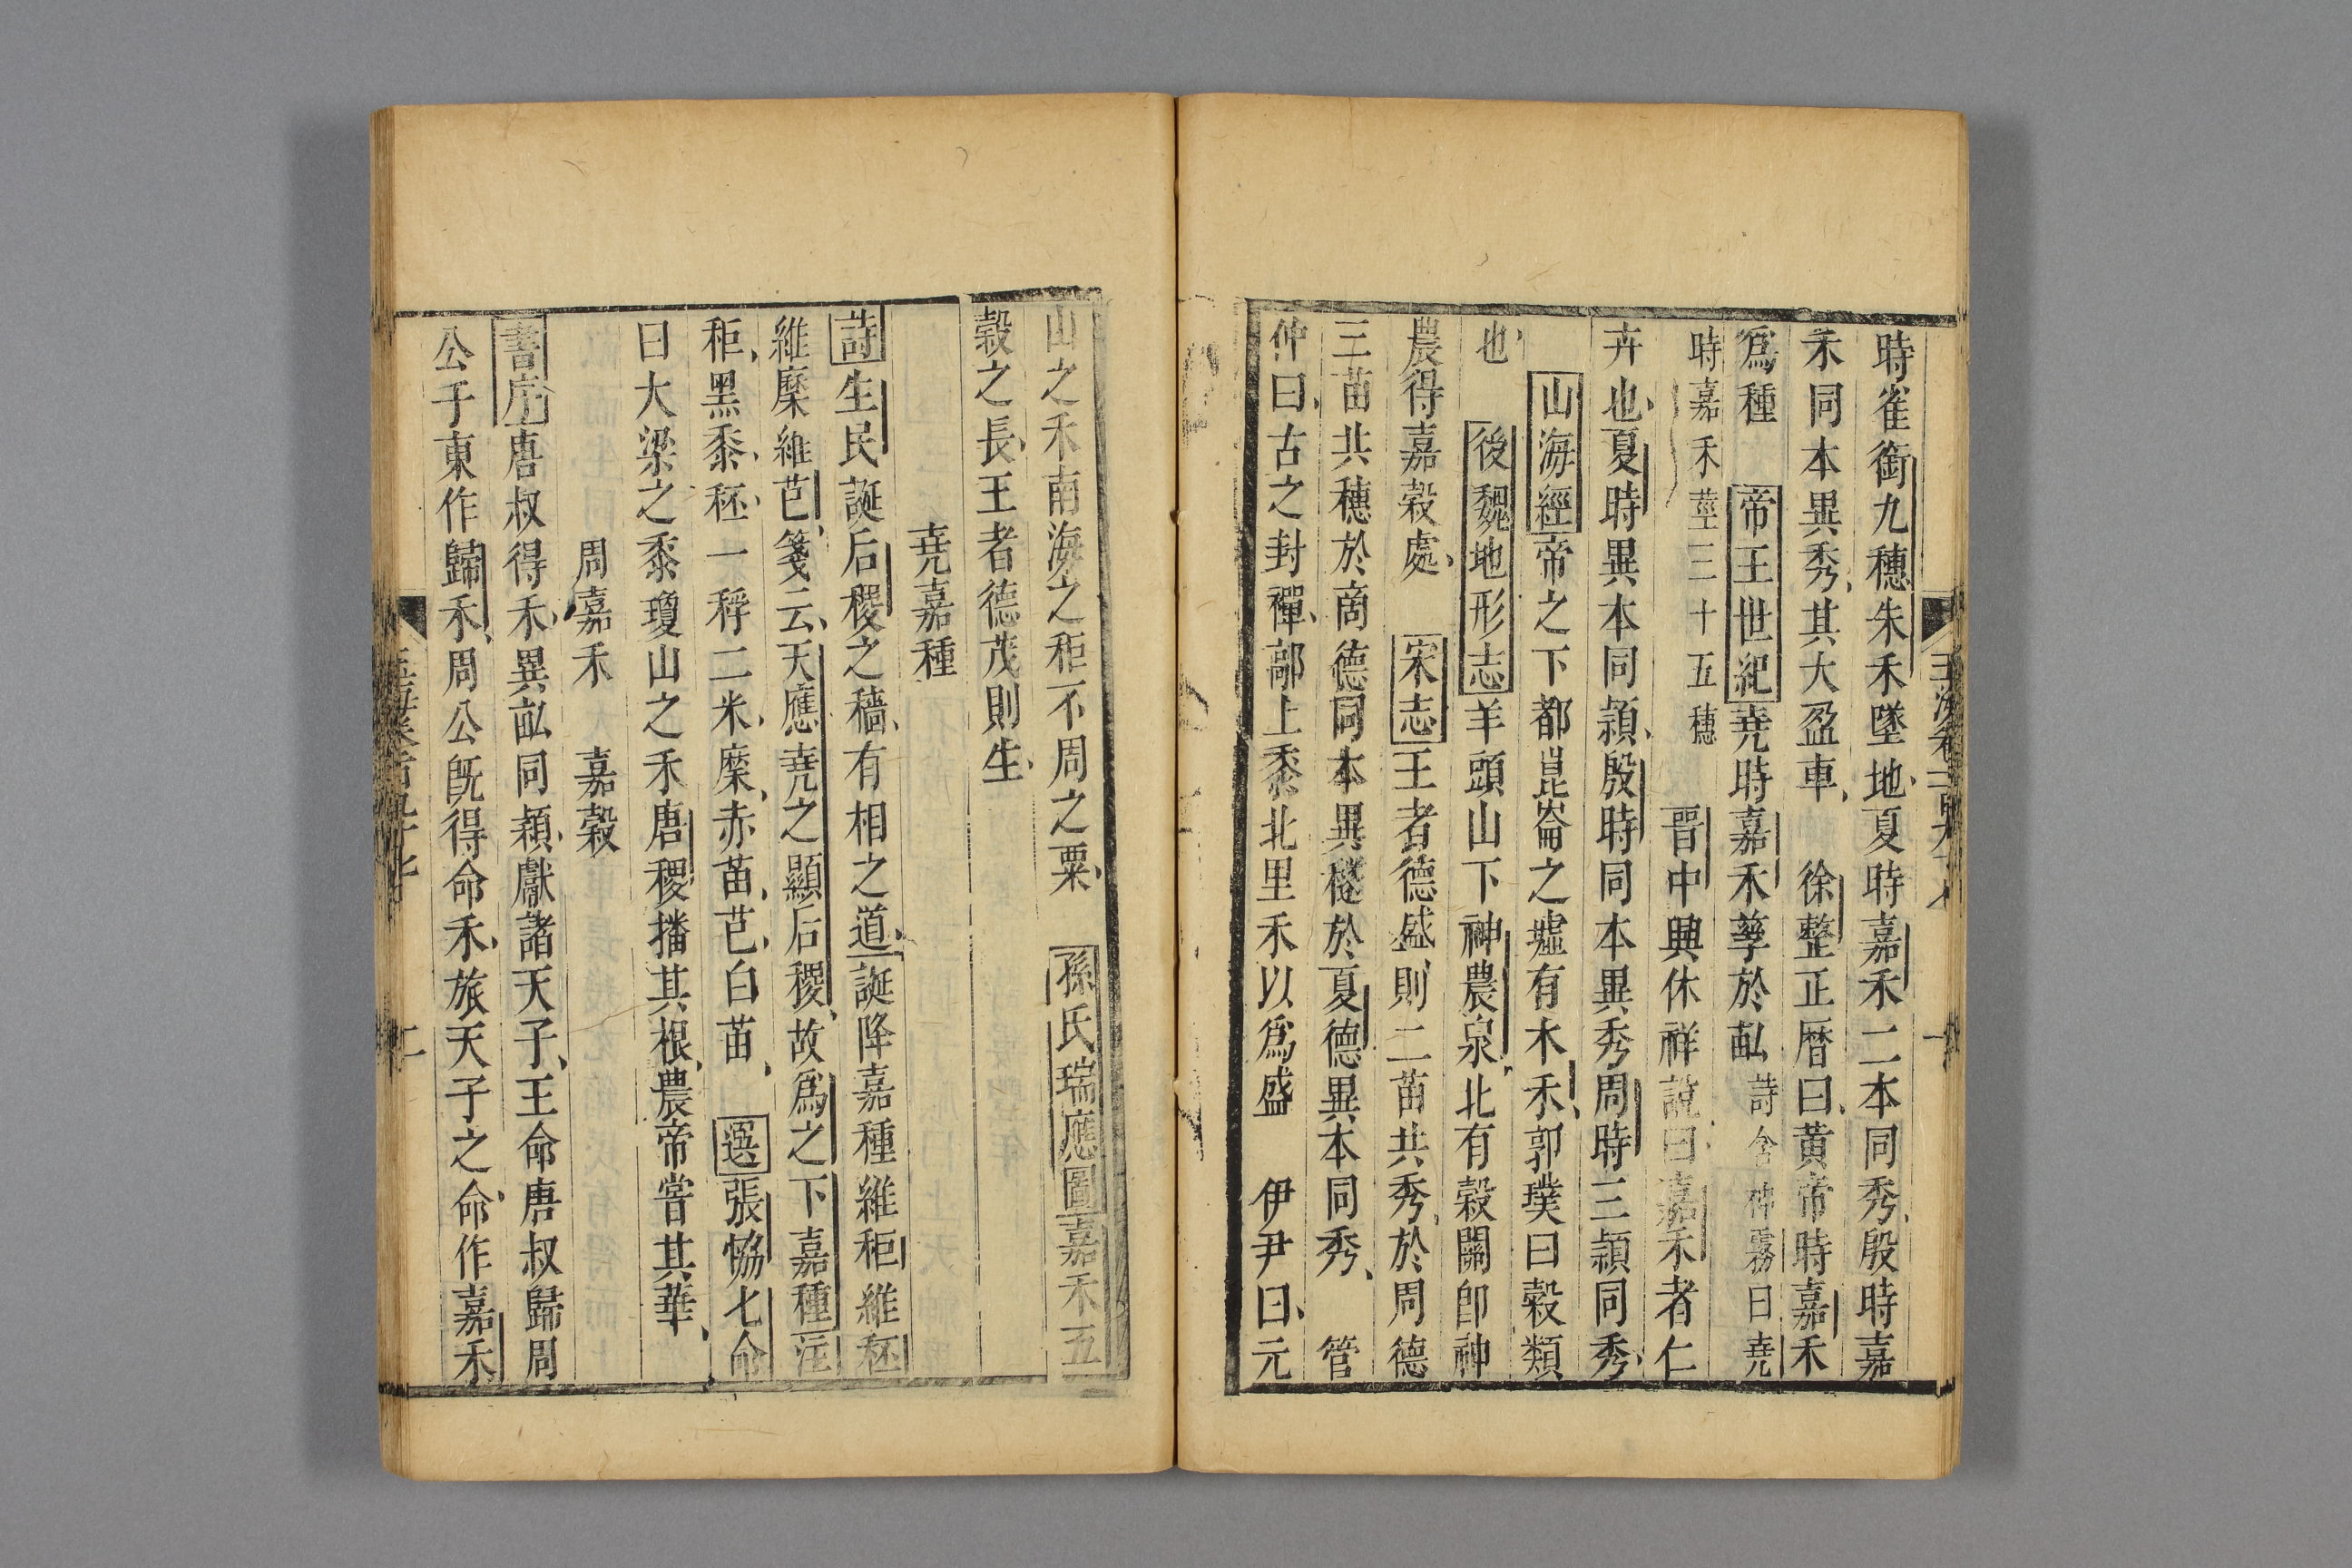 時雀銜九穗朱禾墜地夏時嘉禾二本同秀殷時嘉
禾同本異秀其大盈車 徐整正曆曰黃帝時嘉禾
爲種 帝王世紀堯時嘉禾孳於畝 詩含神霧曰堯
時嘉禾莖三十五穗 晉中興休祥說曰嘉禾者仁
卉也夏時異本同頴殷時同本異秀周時三頴同秀
山海經帝之下都崑崙之墟有木禾郭璞曰穀類
也 後魏地形志羊頭山下神農泉北有穀關卽神
農得嘉穀處 宋志王者德盛則二苗共秀於周德
三苗共穗於商德同本異穟於夏德異本同秀 管
仲曰古之封禪鄗上黍北里禾以爲盛 伊尹曰元
山之禾南海之秬不周之粟 孫氏瑞應圖嘉禾五
穀之長王者德茂則生
堯嘉種
詩生民誕后稷之穡有相之道誕降嘉種維秬維秠
維穈維芑箋云天應堯之顯后稷故爲之下嘉種注
秬黑黍秠一稃二米穈赤苗芑白苗 選張恊七命
曰大梁之黍瓊山之禾唐稷播其根農帝嘗其華
周嘉禾 嘉穀
書序唐叔得禾異畝同頴獻諸天子王命唐叔歸周
公于東作歸禾周公旣得命禾旅天子之命作嘉禾